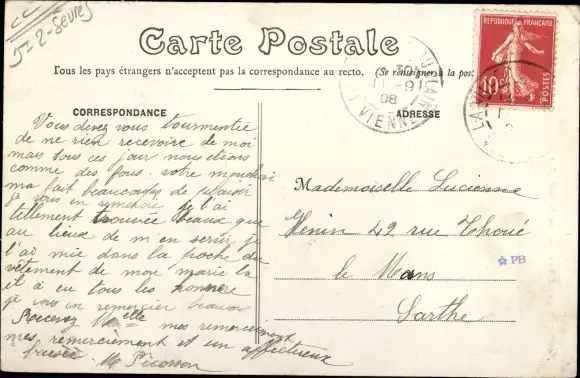 5=2-Sèvres
Carte Postale
Tous les pays étrangers n'acceptent pas la correspondance au recto. (Se renseigner à la post
RÉPUBLIQUE FRANÇAISE
10c
POSTES
VIENNE
08
CORRESPONDANCE
ADRESSE
Vous devez vous tourmentée
de ne rien recevoire de moi
mais tous ces jour nous etions
comme des fous. votre mouchoir
ma fait beaucoup de plaisir
je vous en je l'ai
tellement trouvée beaux que
au lieux de m'en servir je
l'ai mie dans la poche du
vêtement de mon marie la
et à eu tous les honneur
je vous en remercier beaucou
Recevez Melle mes remerciement
mes remerciement et un affectueux
baisée. M Picosson
Mademoiselle Lucienne
Venin 42 rue Thoué
le Mans
Sarthe
PB